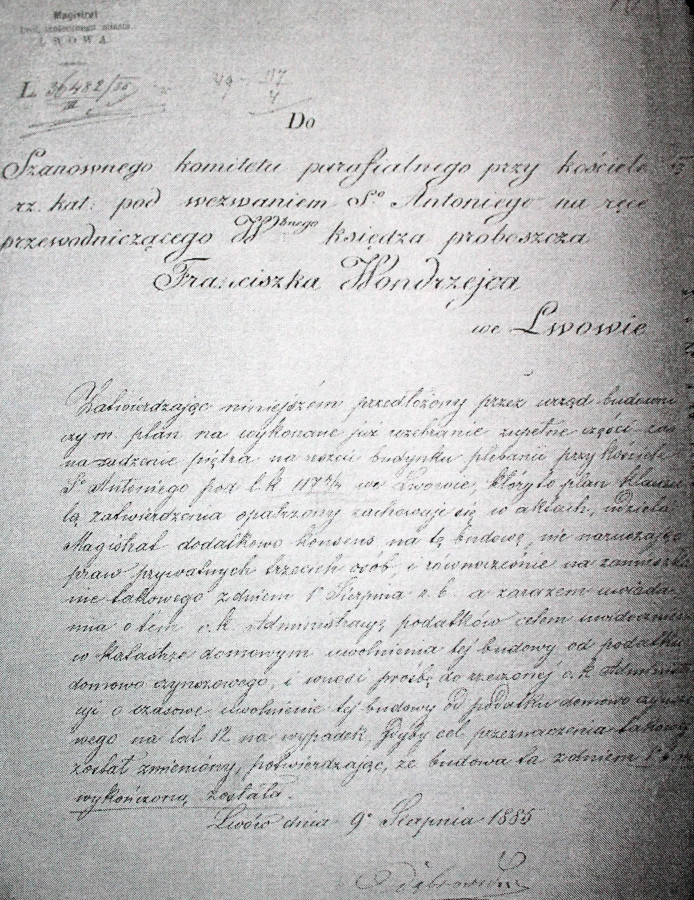 Magistrat
król. stołecznego miasta
LWOWA
L. 36482/85
III
49 117
4
Do
Szanownego komitetu parafialnego przy kościele
rz. kat. pod wezwaniem Sgo Antoniego na ręce
przewodniczącego Wbnego księdza proboszcza
Franciszka Wondrzejca
we Lwowie
Zatwierdzając niniejszém przedłożony przez urząd budowni
czy m. plan na wykonane już rozebranie zupełne części
nasadzenie piętra na reszcie budynku plebanii przy kościele
Sgo Antoniego pod l.k 117 4/4 we Lwowie, któryto plan klauzu
lą zatwierdzenia opatrzony zachowuje się w aktach, udziela
Magistrat dodatkowo konsens na tę budowę, nie naruszając
praw prywatnych trzecich osób, i równocześnie na zamieszka
nie takowego z dniem 1 Sierpnia r.b. a zarazem uwiada
mia o tem c.k Administracyę podatków celem uwidocznienia
w katastrze domowym uwolnienia tej budowy od podatku
domowo czynszowego, i wnosi prośbę do rzeczonej c.k Administra
cyi o czasowe uwolnienie tej budowy od podatku domowo czynszo
wego na lat 12 na wypadek, gdyby cel przeznaczenia takowej
został zmieniony, potwierdzając, że budowa ta z dniem 1
wykończoną została.
Lwów dnia 9 Sierpnia 1885
Dąbrowski